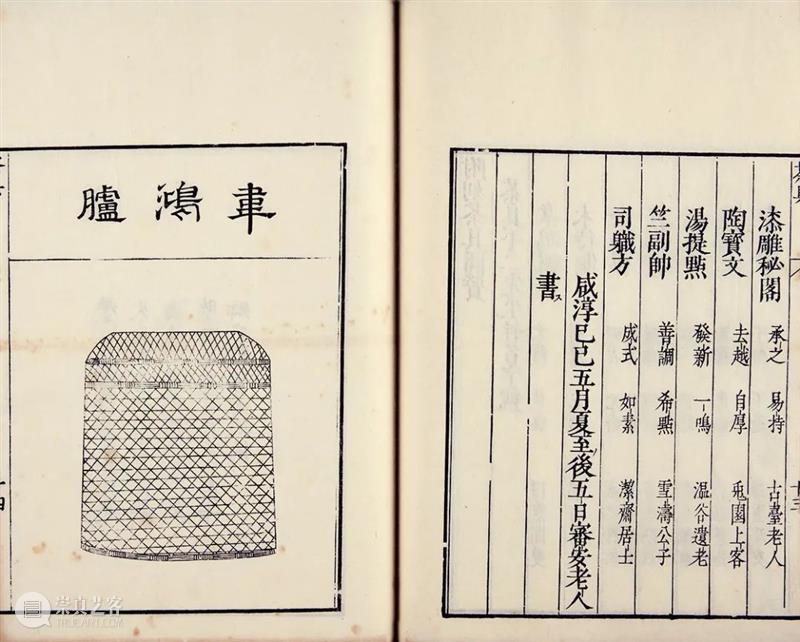 漆雕秘閣 承之 易持 古臺老人
陶寶文 去越 自厚 兎園上客
湯提點 發新 一鳴 温谷遺老
竺副帥 善調 希點 雪濤公子
司職方 成式 如素 潔齋居士
咸淳己巳五月夏至後五日審安老人
書ス
韋鴻臚
崇真艺客
TRUEART.COM